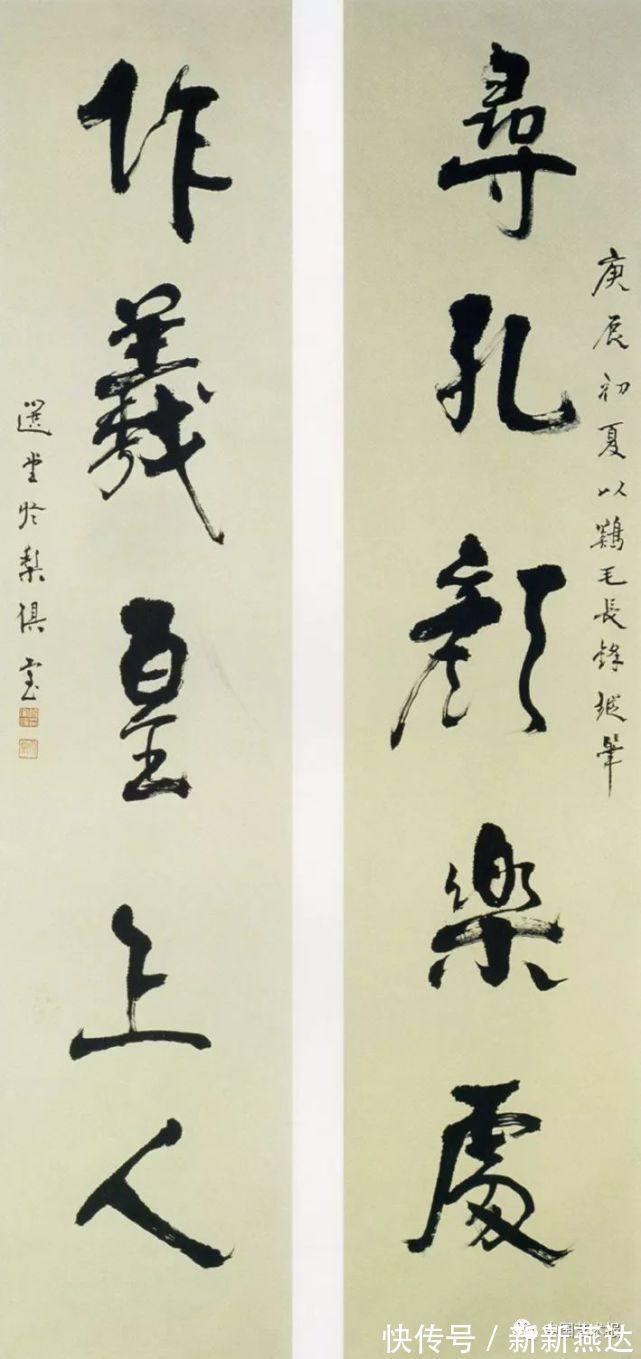 尋孔顏樂處
庚辰初夏以鷄毛長鋒縱筆
作羲皇上人
選堂於梨俱室
快传号／新新燕达
中国艺术报